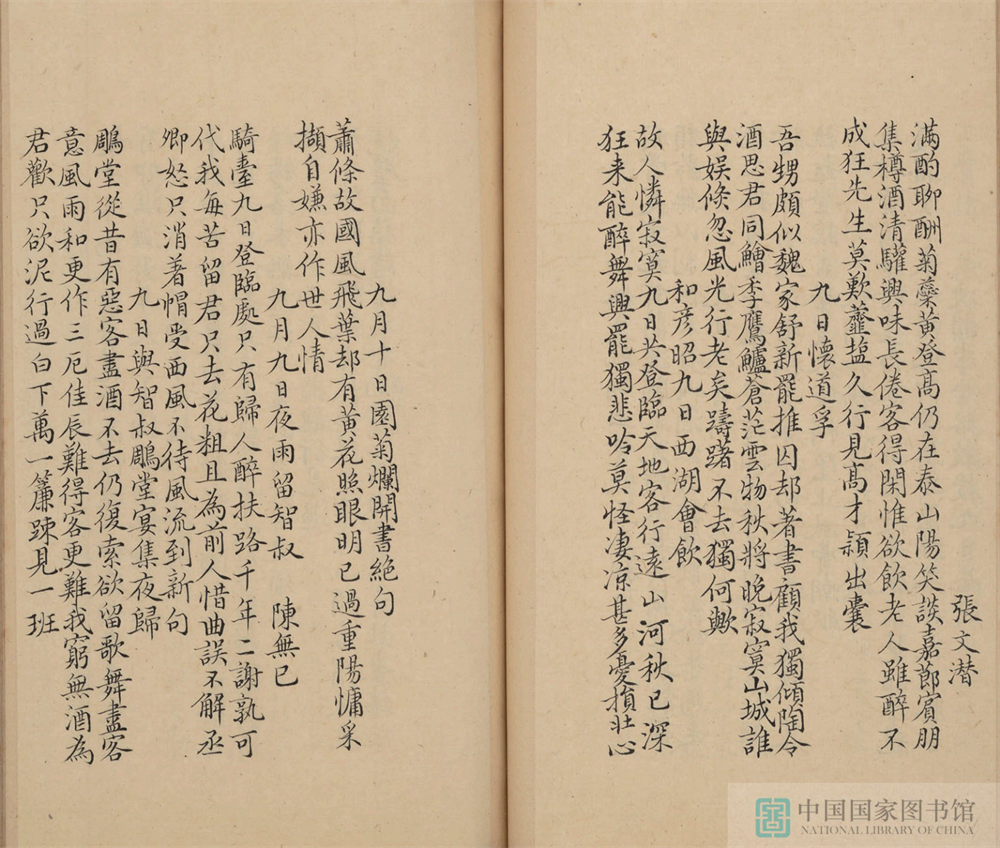 張文潜
滿酌聊酬菊蘂黃登髙仍在泰山陽笑談嘉節賓朋
集樽酒清驩興味長倦客得閑惟欲飲老人雖醉不
成狂先生莫歎虀塩久行見髙才穎出囊
九日懷道孚
吾甥頗似魏家舒新罷推囚却著書顧我獨傾陶令
酒思君同鱠季鷹鱸蒼茫雲物秋將晚寂寞山城誰
與娱倐忽風光行老矣躊躇不去獨何歟
和彦昭九日西湖會飲
故人憐寂寞九日共登臨天地客行遠山河秋已深
狂来能醉舞興罷獨悲吟莫怪凄凉甚多憂損壯心
九月十日園菊爛開書絶句
蕭條故國風飛葉却有黃花照眼明已過重陽慵采
擷自嫌亦作世人情
九月九日夜雨留智叔 陳無已
騎臺九日登臨處只有歸人醉扶路千年二謝孰可
代我每苦留君只去花粗且為前人惜曲誤不解丞
卿怒只消著帽受西風不待風流到新句
九日與智叔鵰堂宴集夜歸
鵰堂從昔有惡客盡酒不去仍復索欲留歌舞盡客
意風雨和更作三厄佳辰難得客更難我窮無酒為
君歡只欲泥行過白下萬一簾踈見一班
中国国家图书馆
NATIONAL LIBRARY OF CHINA